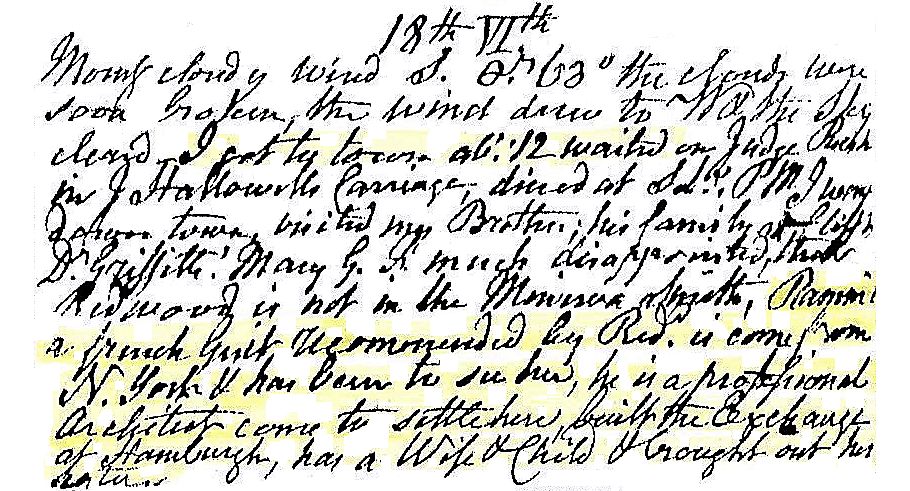 18th VIth
Morng cloudy wind S. 63° the clouds were
soon broken, the wind drew to the Sky
cleard I got to town abt. 12 waited on Judge
in J Hallowells Carriage, dined at PM I went
down town, visited my Brother, his family
Dr. Griffitts. Mary G. is much disappointed, that
Redwood is not in the Minerva Smith,
a french Gent recommended by Redd. is come from
N. York & has been to see her, he is a professional
Architect come to settle here, built the Exchange
at Hamburgh, has a Wife & Child & brought out her